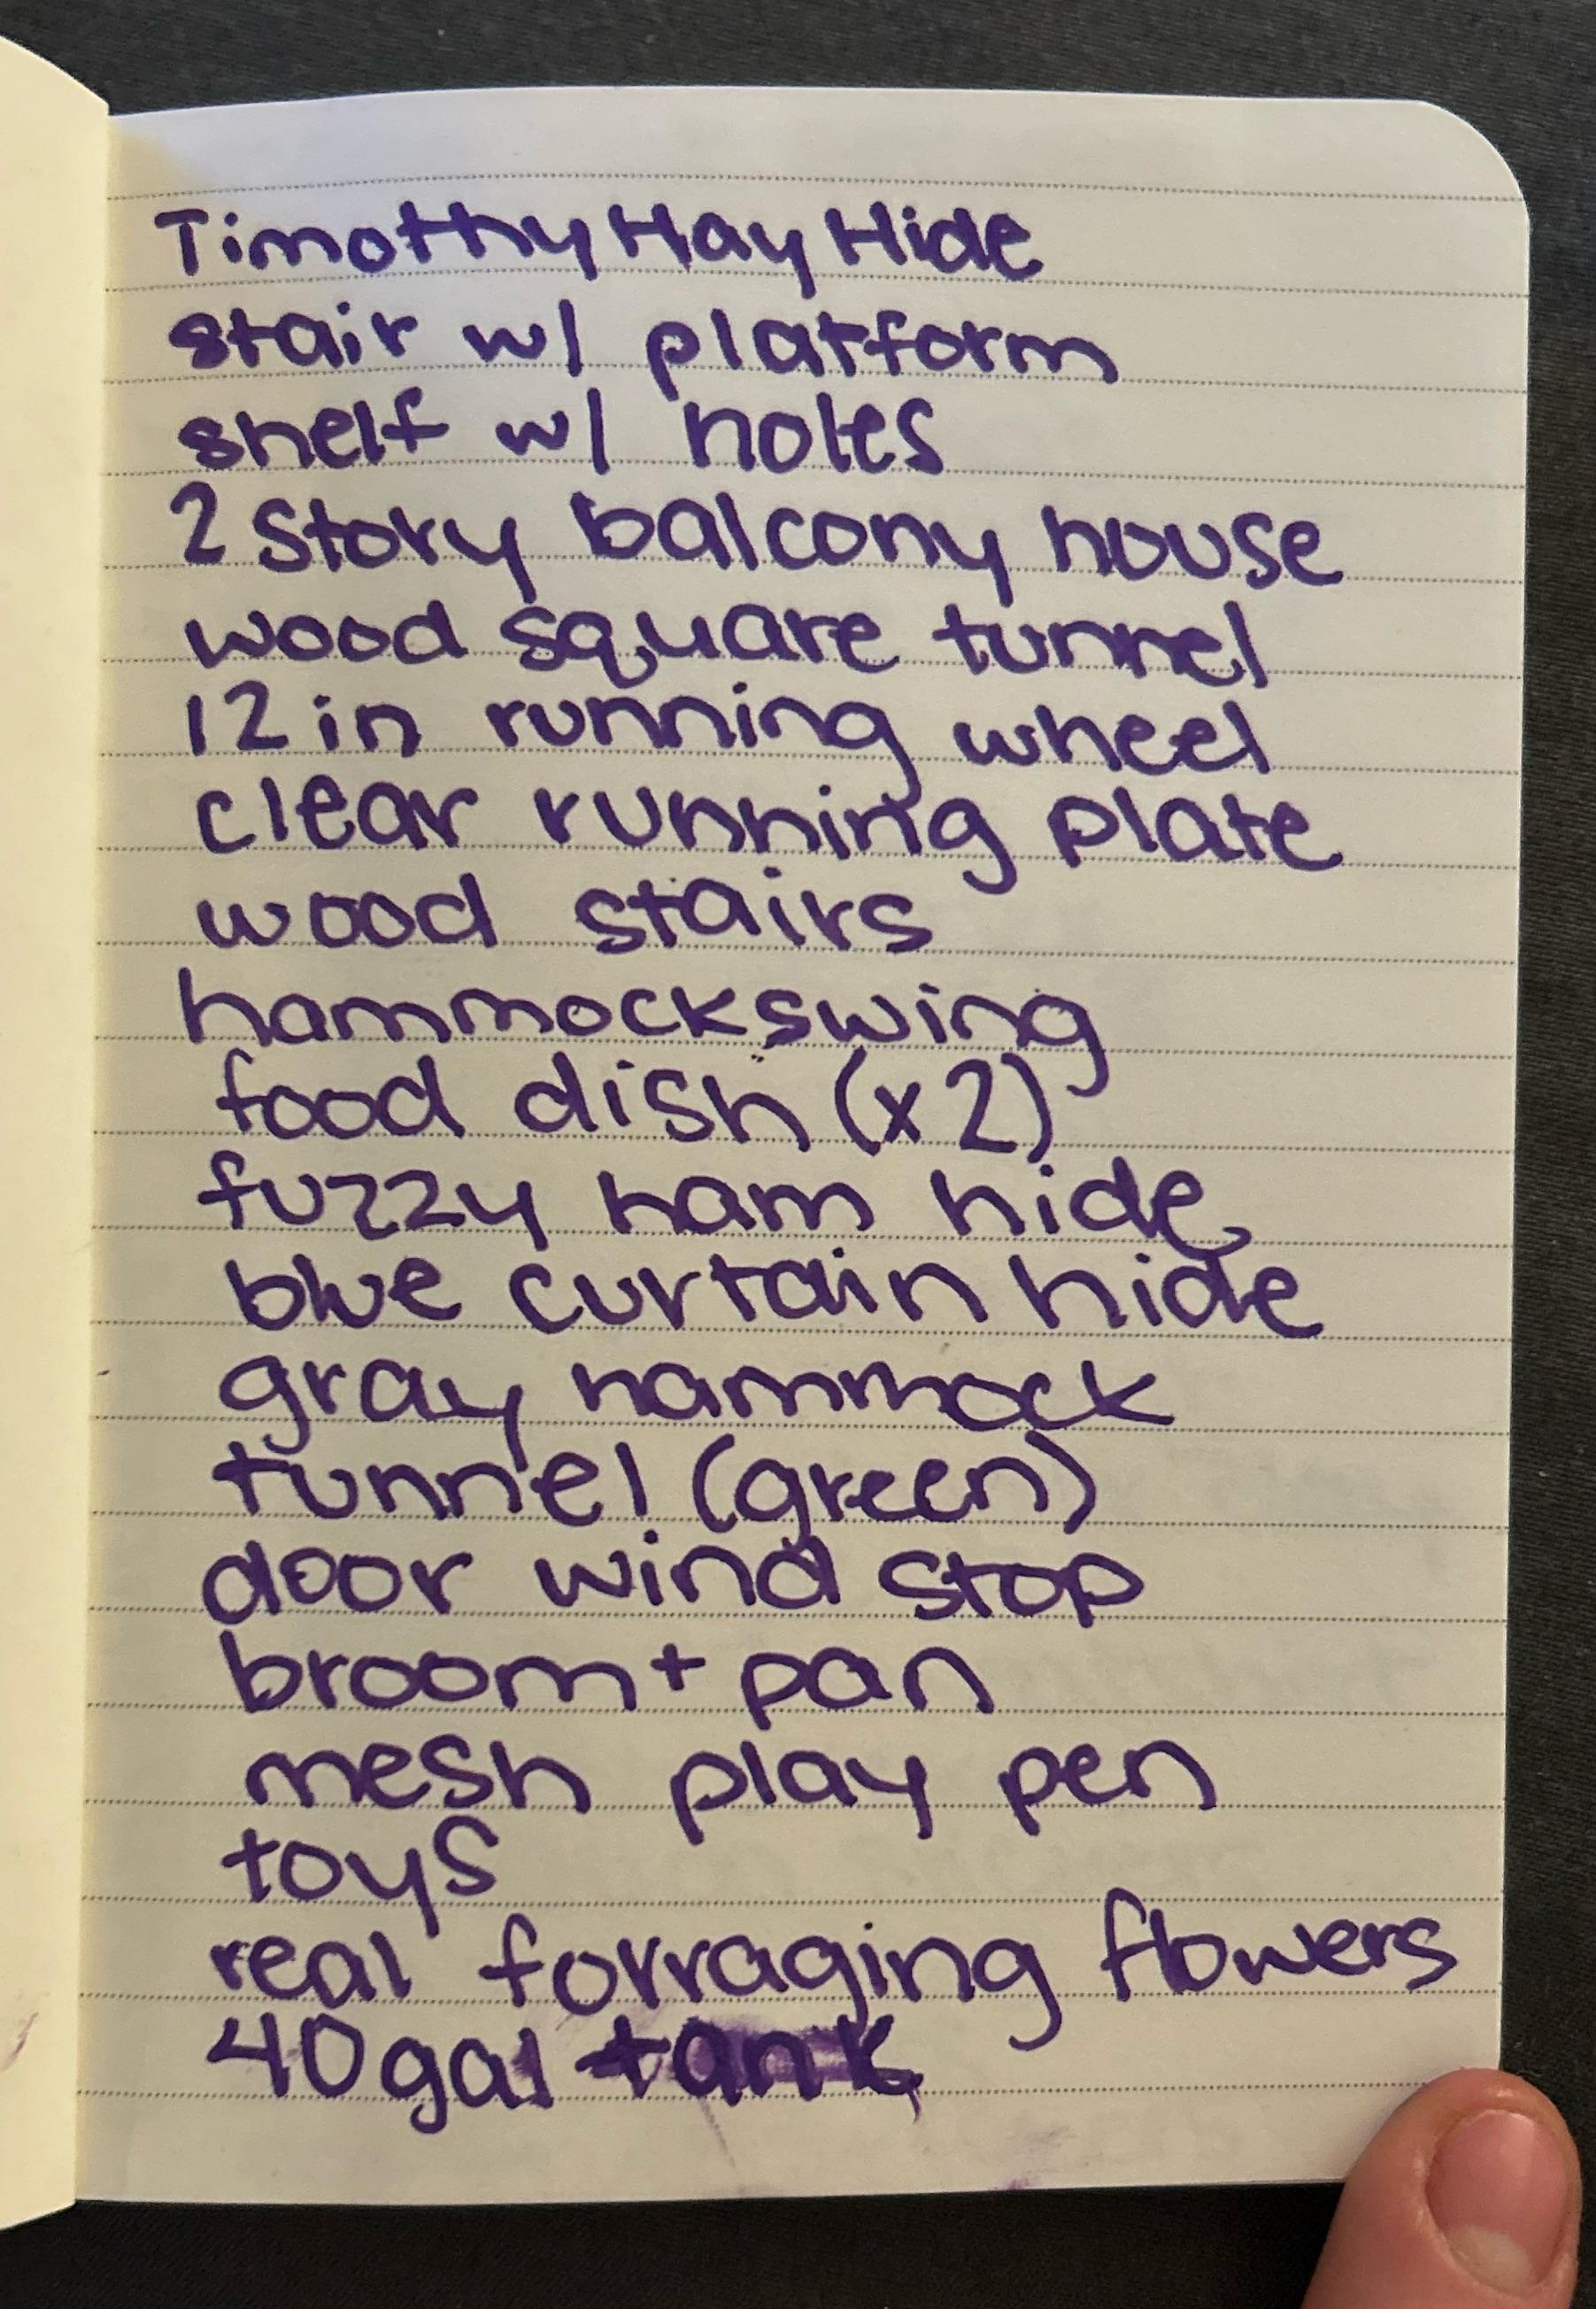 Timothy Hay Hide
stair w/ platform
shelf w/ holes
2 Story balcony house
wood square tunnel
12 in running wheel
clear running plate
wood stairs
hammock swing
food dish (x2)
fuzzy ham hide
blue curtain hide
gray hammock
tunnel (green)
door wind stop
broom + pan
mesh play pen
toys
real forraging flowers
40 gal tank